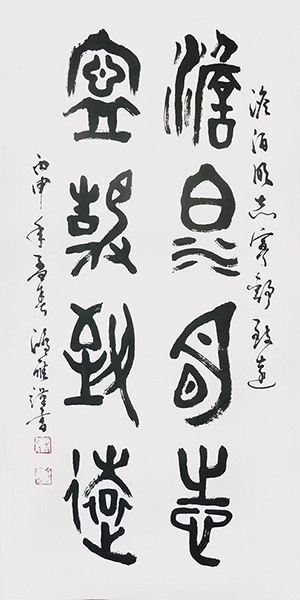 澹泊明志寧靜致遠
澹泊明志
寧靜致遠
丙申年孟春鴻雁謹書